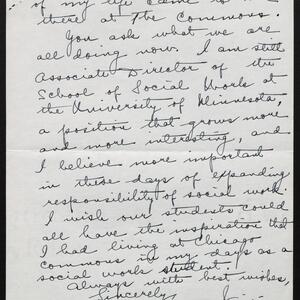 of my life came to me
there at The Commons.
You ask what we are
all doing now. I am still
Associate Director of the
School of Social Work at
the University of Minnesota,
a position that grows more
and more interesting, and
I believe more important
in these days of expanding
responsibility of social work.
I wish our students could
all have the inspiration that
I had living at Chicago
Commons in my days as a
social work student!
Always with best wishes,
Sincerely